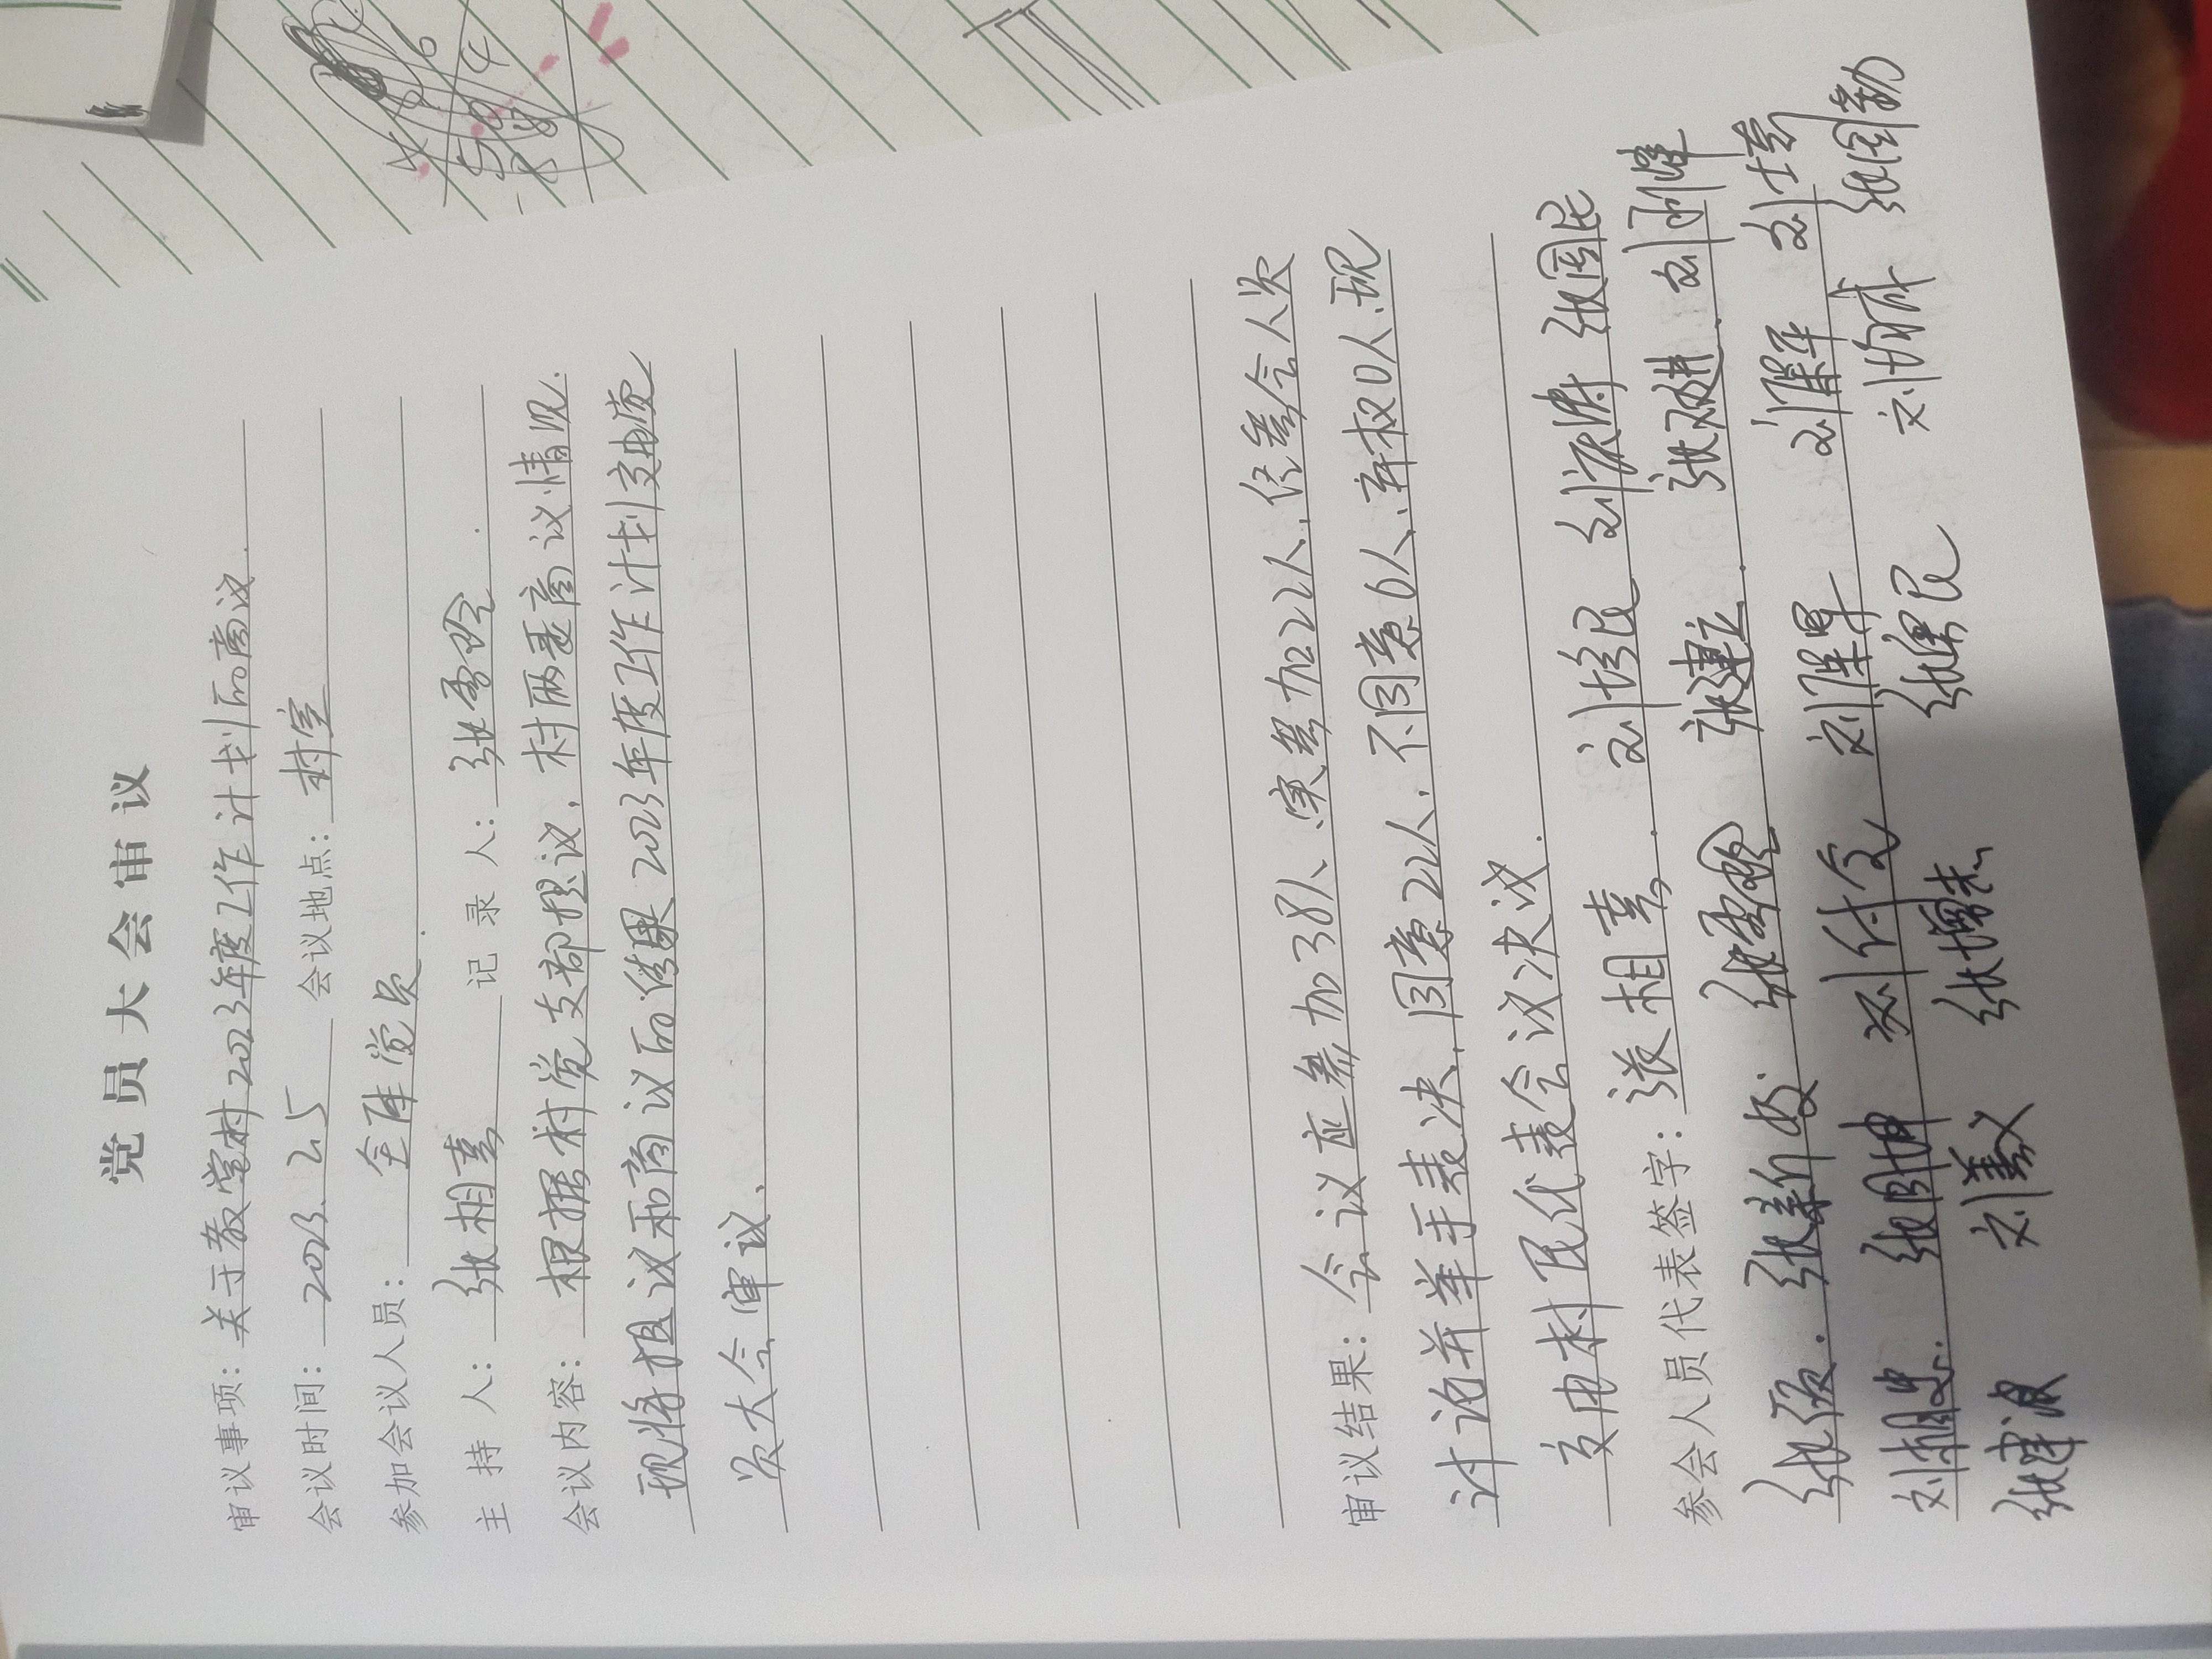 党员大会审议
审议事项: 关于教堂村2023年度工作计划的商议.
会议时间: 2023.2.5 会议地点: 村室
参加会议人员: 全体党员.
主持人: 张相喜 记录人: 张雪玲.
会议内容: 根据村党支部提议,村两委商议情况.
现将提议和商议的结果2023年度工作计划交由党
员大会审议.
审议结果: 会议应参加38人、实参加22人,经参会人员
讨论并举手表决,同意22人,不同意0人、弃权0人、现
交由村民代表会议决议.
参会人员代表签字: 张相喜. 刘珍民 刘庆涛 张周民
张新 张雪玲 张建立. 张双进.
刘相忠. 张周坤 刘付全 刘保军 刘保平
张建波 刘义 张增杰 张民 刘成 张国勤
4 6
5 4
8 8